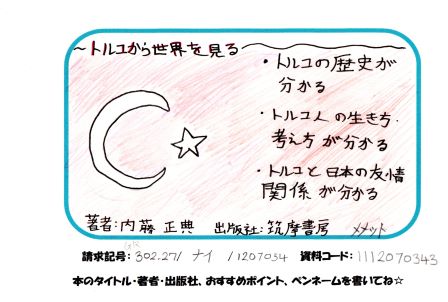 ～トルコから世界を見る～
・トルコの歴史が
分かる
・トルコ人の生き方・
考え方が分かる
・トルコと日本の友情
関係が分かる
著者:内藤 正典 出版社:筑摩書房 メメット
GK
請求記号: 302.27/ ナイ /1207054 資料コード: 1112070343
本のタイトル・著者・出版社、おすすめポイント、ペンネームを書いてね☆